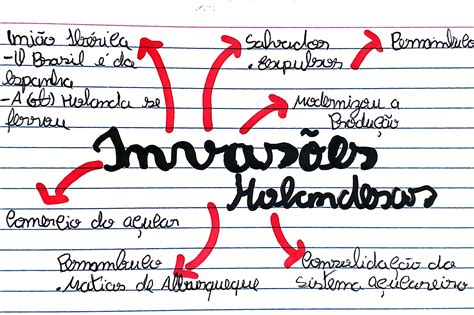 União Ibérica
- O Brasil é da
espanha
- A Holanda se
ferrou
Salvador
. expulsos
Pernambuco
Modernizou a
Produção
Invasões
Holandesas
Comercio do açúcar
Pernambuco
. Matias de Albuquerque
Consolidação do
sistema açucareiro